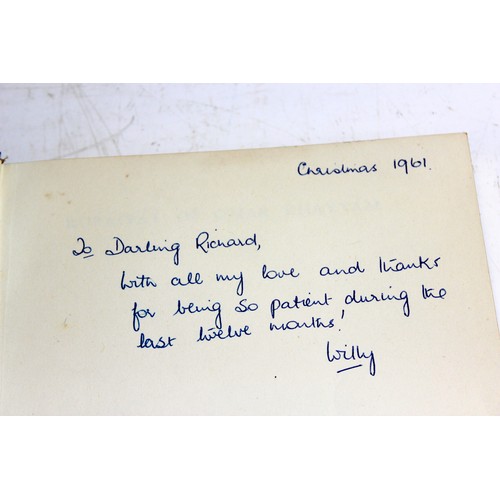 Christmas 1961.
To Darling Richard,
With all my love and thanks
for being so patient during the
last twelve months!
Willy